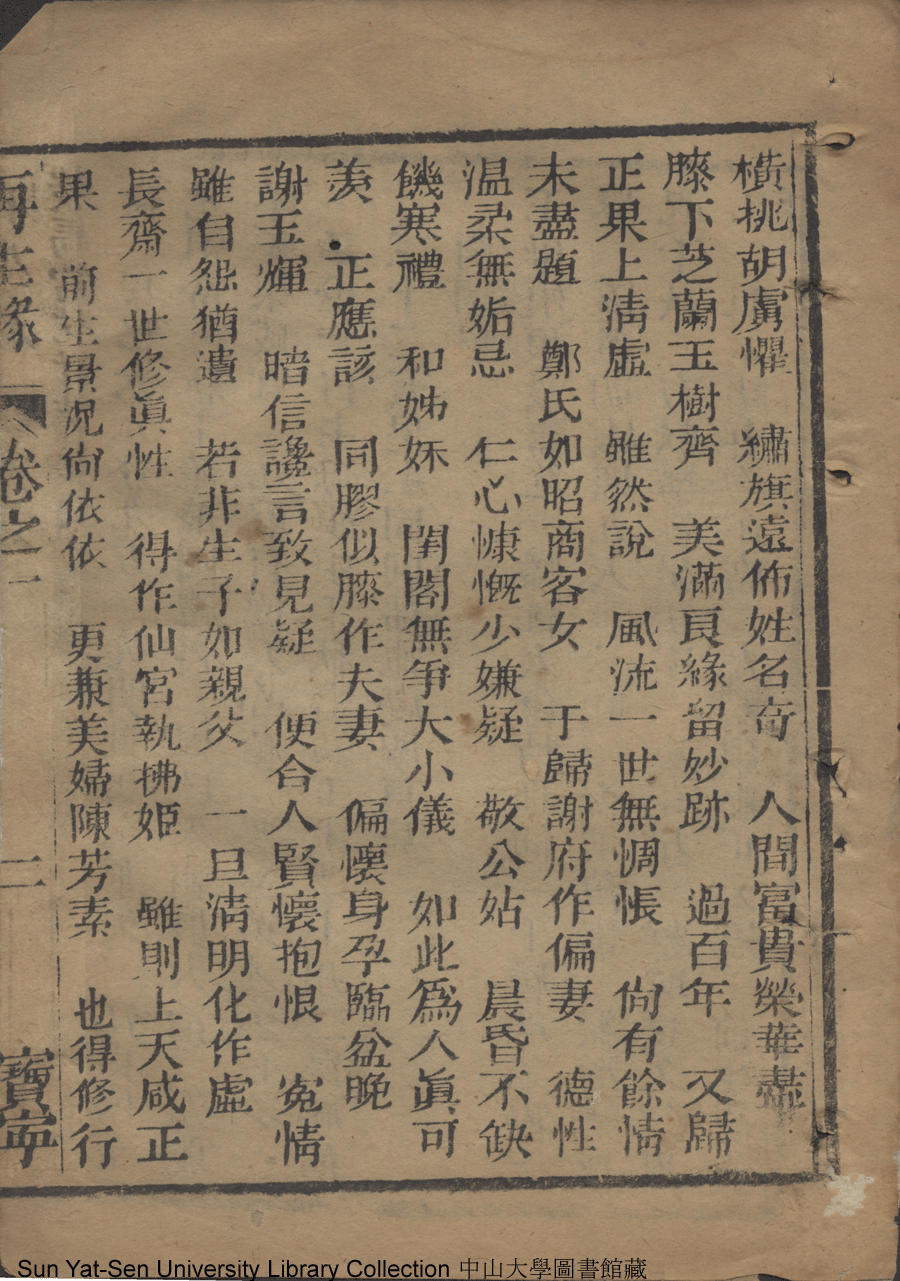 橫挑胡虜懼　繡旗遠佈姓名奇　人間富貴榮華盡
膝下芝蘭玉樹齊　美滿良緣留妙跡　過百年　又歸
正果上淸虛　雖然說　風流一世無惆悵　尙有餘情
未盡題　鄭氏如昭商客女　于歸謝府作偏妻　德性
温柔無妬忌　仁心慷慨少嫌疑　敬公姑　晨昏不缺
饑寒禮　和姊妹　閨閣無爭大小儀　如此爲人眞可
羡　正應該　同膠似膝作夫妻　偏懷身孕臨盆晚
謝玉煇　暗信讒言致見疑　便合人賢懷抱恨　寃情
雖自怨猶遺　若非生子如親父　一旦淸明化作虛
長齋一世修眞性　得作仙宮執拂姬　雖則上天咸正
果　前生景況尙依依　更兼美婦陳芳素　也得修行
再生緣　卷之一　二　寶寧
Sun Yat-Sen University Library Collection 中山大學圖書館藏